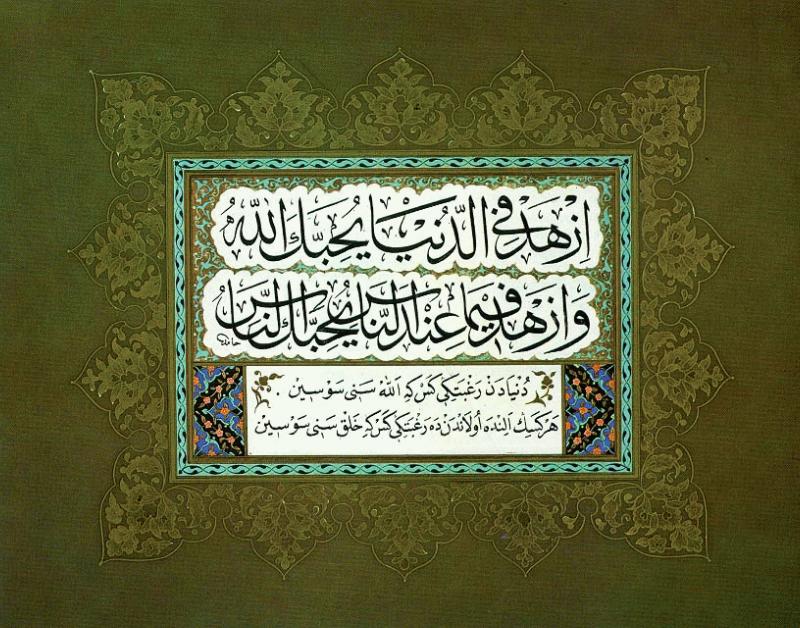 اِزْهَدْ فِي الدُّنْيَا يُحِبَّكَ اللّٰهُ
وَازْهَدْ فِيمَا عِنْدَ النَّاسِ يُحِبَّكَ النَّاسُ
حامد
دُنْيَادَنْ رَغْبَتِڭِى كَسْ كِه اَللّٰه سَنِى سَوْسِينْ .
هَرْ كَسِڭْ اَلِنْدَه اُولَانْدَنْ دَه رَغْبَتِڭِى كَسْ كِه خَلْقْ سَنِى سَوْسِينْ